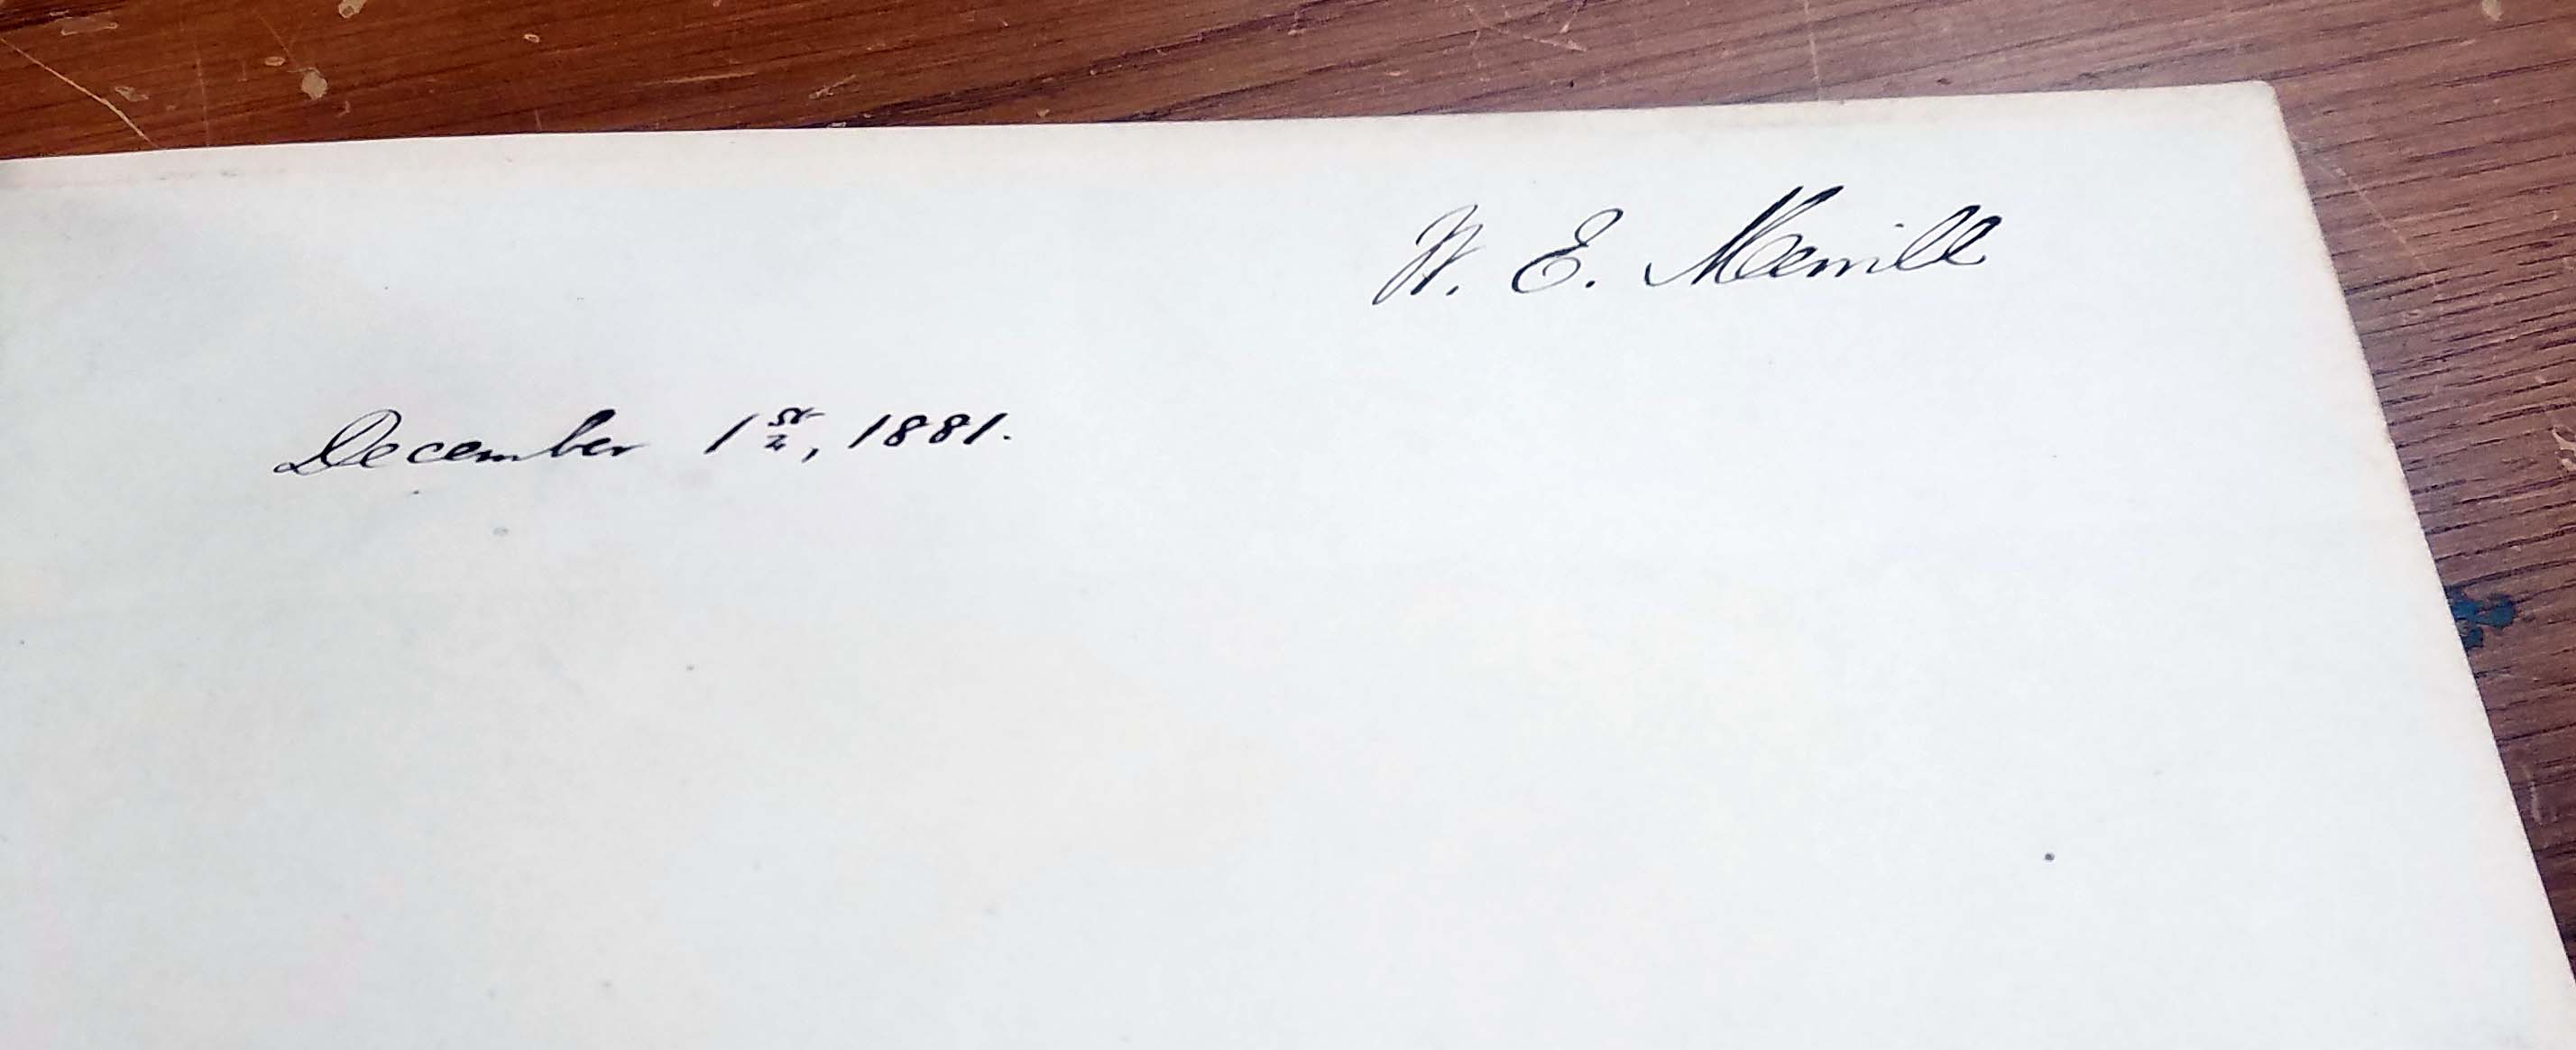 W. E. Merrill
December 1st, 1881.